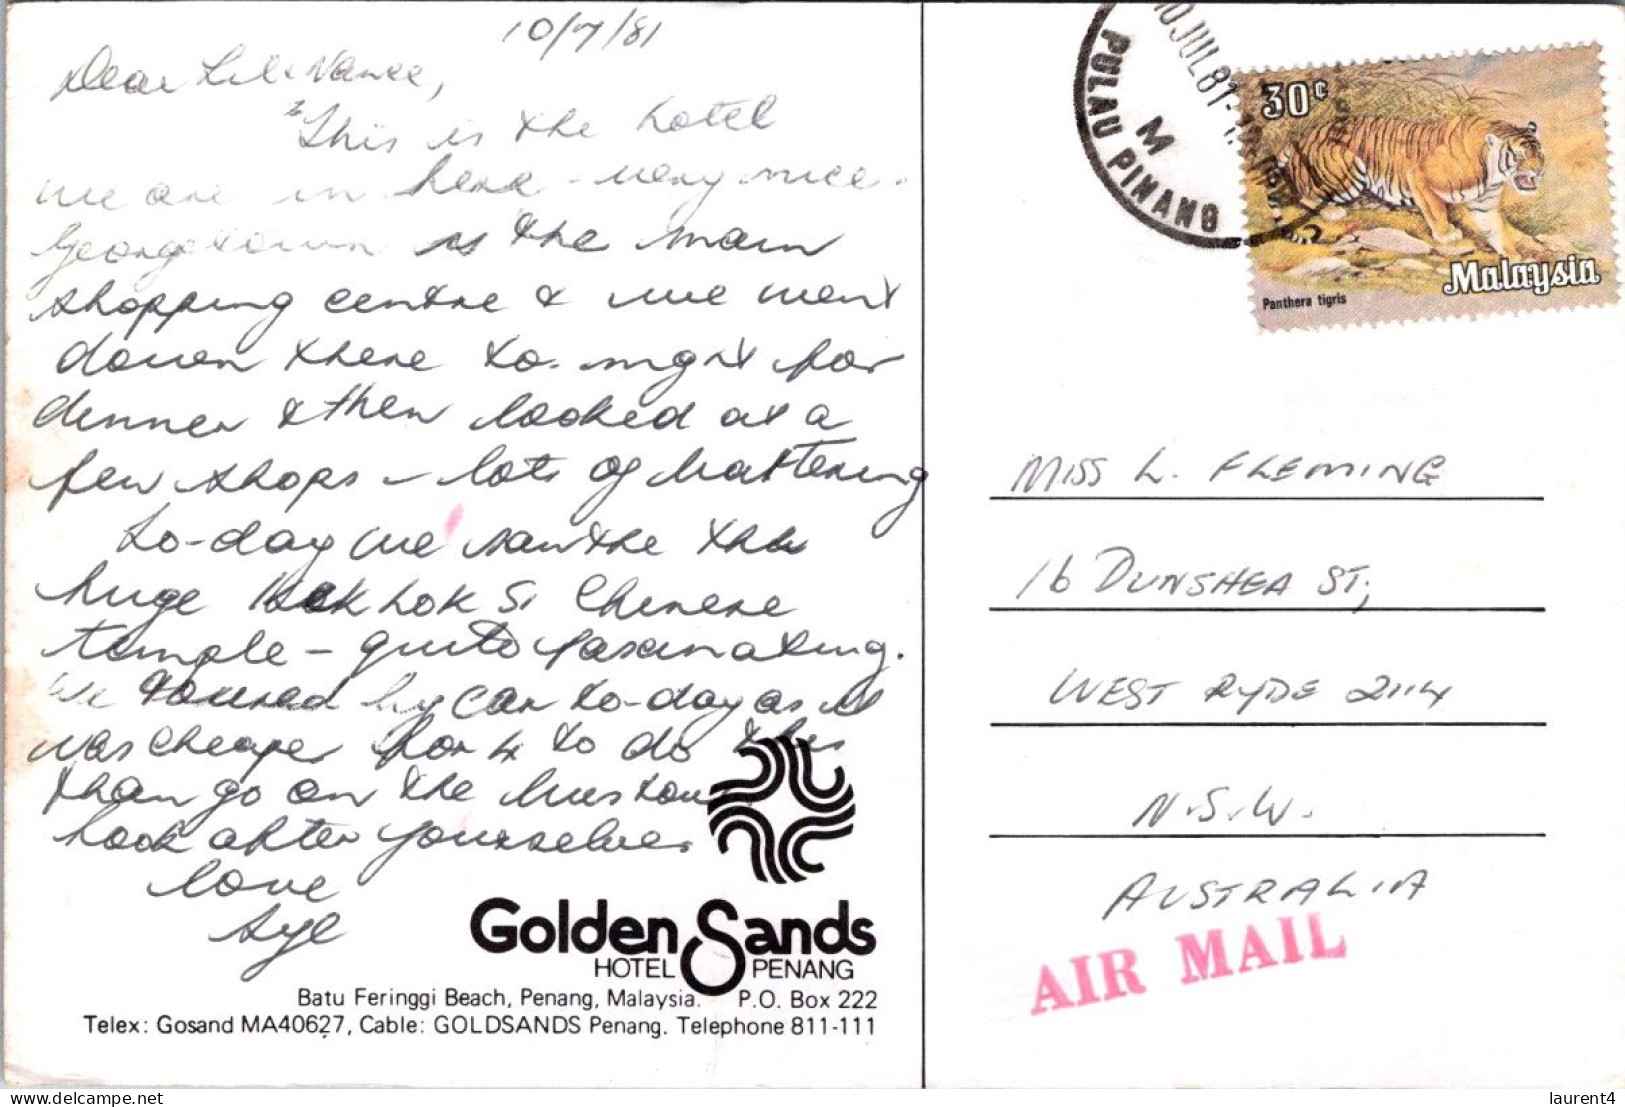 10/7/81
Dear Lil & Vance,
This is the hotel
we are in here - very nice.
Georgetown is the main
shopping centre & we went
down there to-night for
dinner & then looked at a
few shops - lots of bartering
To-day we saw the the
huge Kek Lok Si Chinese
temple - quite fascinating.
We toured by car to-day as it
was cheaper for 4 to do this
than go on the bus tour
Look after yourselves
love
Syl
Golden Sands
HOTEL PENANG
Batu Feringgi Beach, Penang, Malaysia. P.O. Box 222
Telex: Gosand MA40627, Cable: GOLDSANDS Penang. Telephone 811-111
10 JUL 81
M
PULAU PINANG
30¢
Malaysia
Panthera tigris
MISS L. FLEMING
16 DUNSHEA ST,
WEST RYDE 2114
N.S.W.
AUSTRALIA
AIR MAIL
delcampe.net
laurent4